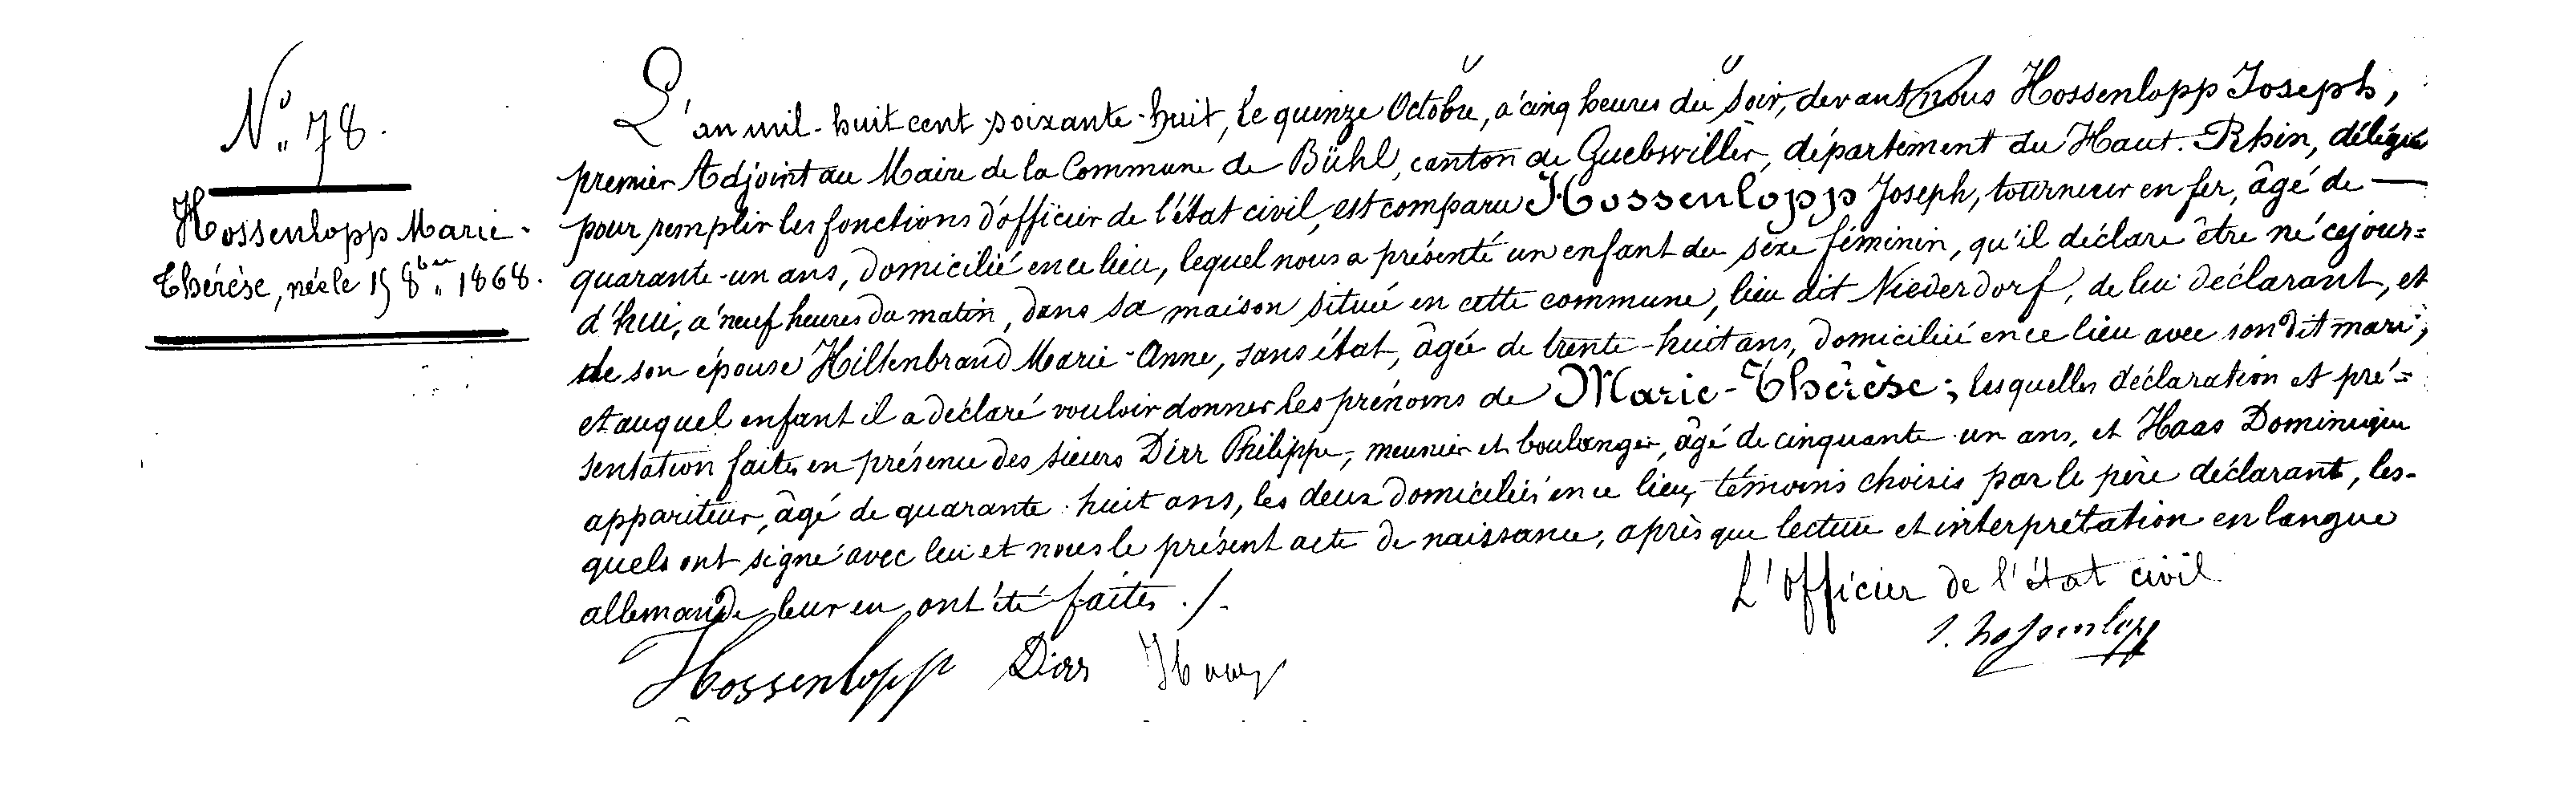 N° 78.
Hossenlopp Marie-
Thérèse, née le 15 8bre 1868.
L'an mil-huit cent-soixante-huit, le quinze Octobre, à cinq heures du soir, devant nous Hossenlopp Joseph,
premier Adjoint au Maire de la Commune de Bühl, canton de Guebwiller, département du Haut-Rhin, délégué
pour remplir les fonctions d'officier de l'état civil, est comparu Hossenlopp Joseph, tourneur en fer, âgé de —
quarante-un ans, domicilié en ce lieu, lequel nous a présenté un enfant du sexe féminin, qu'il déclare être né cejour=
d'hui, à neuf heures du matin, dans sa maison située en cette commune, lieu dit Niederdorf, de lui déclarant, et
de son épouse Hiltenbrand Marie-Anne, sans état, âgée de trente-huit ans, domiciliée en ce lieu avec son dit mari;
et auquel enfant il a déclaré vouloir donner les prénoms de Marie-Thérèse; lesquelles déclaration et pré=
sentation faites en présence des sieurs Dirr Philippe, meunier et boulanger, âgé de cinquante-un ans, et Haas Dominique
appariteur, âgé de quarante-huit ans, les deux domiciliés en ce lieu, témoins choisis par le père déclarant, les-
quels ont signé avec lui et nous le présent acte de naissance, après que lecture et interprétation en langue
allemande leur en ont été faites ./.
L'Officier de l'état civil
Hossenlopp Dirr Haas
J. hossenlopp